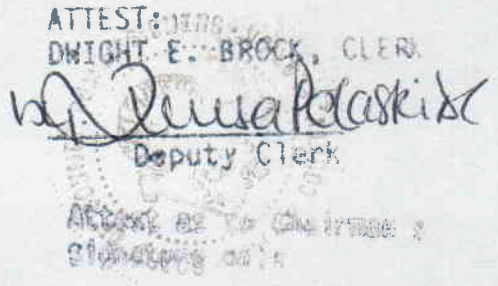 ATTEST:
DWIGHT E. BROCK, CLERK
by
Deputy Clerk
Attest as to Chairman's
signature only